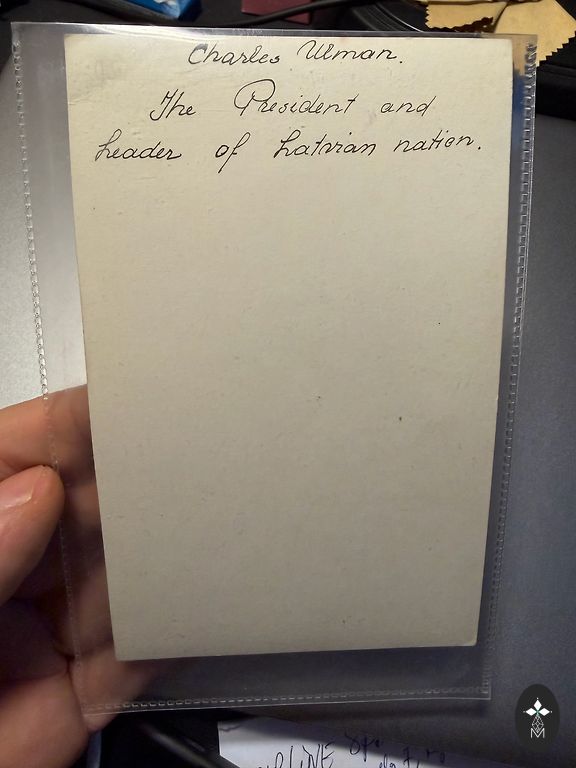 Charles Ulman.
The President and
Leader of Latvian nation.